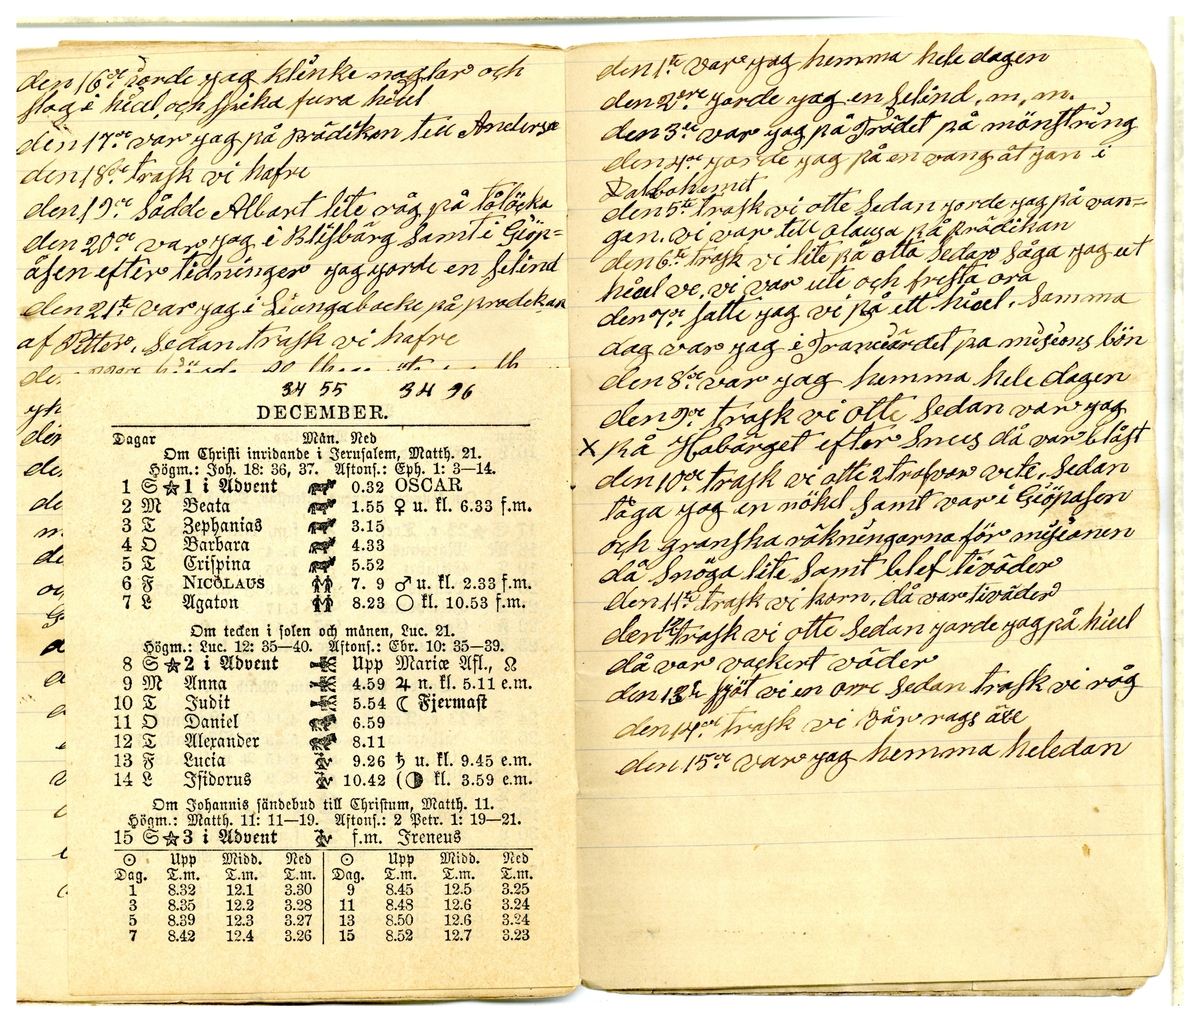 den 16de gorde jag klinke naglar och
slog i hiul, och spika fura hiul
den 17de var jag på prädikan till Anders
den 18de trask vi hafre
den 19de Sådde Albart lite råg på
den 20de var jag i Blifbärg samt i Giöp=
åsen efter tidninger jag gorde en selind
den 21te var jag i Liongabacke på prädikan
af Petter, Sedan trask vi hafre
den
34 55 34 96
DECEMBER.
Dagar Mån. Ned
Om Christi inridande i Jerusalem, Matth. 21.
Högm.: Joh. 18: 36, 37. Aftons.: Eph. 1: 3—14.
1 S ★ 1 i Advent 0.32 OSCAR
2 M Beata 1.55 ♀ u. kl. 6.33 f.m.
3 T Zephanias 3.15
4 O Barbara 4.33
5 T Crispina 5.52
6 F NICOLAUS 7. 9 ♂ u. kl. 2.33 f.m.
7 L Agaton 8.23 ○ kl. 10.53 f.m.
Om tecken i solen och månen, Luc. 21.
Högm.: Luc. 12: 35—40. Aftons.: Ebr. 10: 35—39.
8 S ★ 2 i Advent Upp Mariæ Afl., ☊
9 M Anna 4.59 ♃ n. kl. 5.11 e.m.
10 T Judit 5.54 ☾ Fjermast
11 O Daniel 6.59
12 T Alexander 8.11
13 F Lucia 9.26 ♄ u. kl. 9.45 e.m.
14 L Isidorus 10.42 (◑ kl. 3.59 e.m.
Om Johannis sändebud till Christum, Matth. 11.
Högm.: Matth. 11: 11—19. Aftons.: 2 Petr. 1: 19—21.
15 S ★ 3 i Advent f.m. Ireneus
☉ Upp Midd. Ned ☉ Upp Midd. Ned
Dag. T.m. T.m. T.m. Dag. T.m. T.m. T.m.
1 8.32 12.1 3.30 9 8.45 12.5 3.25
3 8.35 12.2 3.28 11 8.48 12.6 3.24
5 8.39 12.3 3.27 13 8.50 12.6 3.24
7 8.42 12.4 3.26 15 8.52 12.7 3.23
den 1te var jag hemma hele dagen
den 2dre gorde jag en selind, m, m.
den 3de var jag på Trädet på mönstring
den 4de gorde jag på en vang åt jan i
Dalbohemit
den 5te trask vi otte Sedan gorde jag på van=
gen. vi var till olausa på prädikan
den 6te trask vi lite på otta sedan såga jag ut
hiul ve, vi var ute och fresta ora
den 7de satte jag vi på ett hiul. Samma
dag var jag i Tranciärdet på misions bön
den 8de var jag hemma hele dagen
den 9de trask vi otte Sedan var jag
x på Habärget efter Snus då var blåst
den 10de trask vi otte 2 trafvar vete. Sedan
tåga jag en nökel Samt var i Giöpasen
och granska räkningarna för misionen
då Snöga lite Samt blef tiväder
den 11te trask vi korn, då var tiväder
den 12 trask vi otte Sedan gorde jag på hiul
då var vackert väder
den 13de sjöt vi en orre Sedan trask vi råg
den 14de trask vi vår rags äxe
den 15de var jag hemma heledan